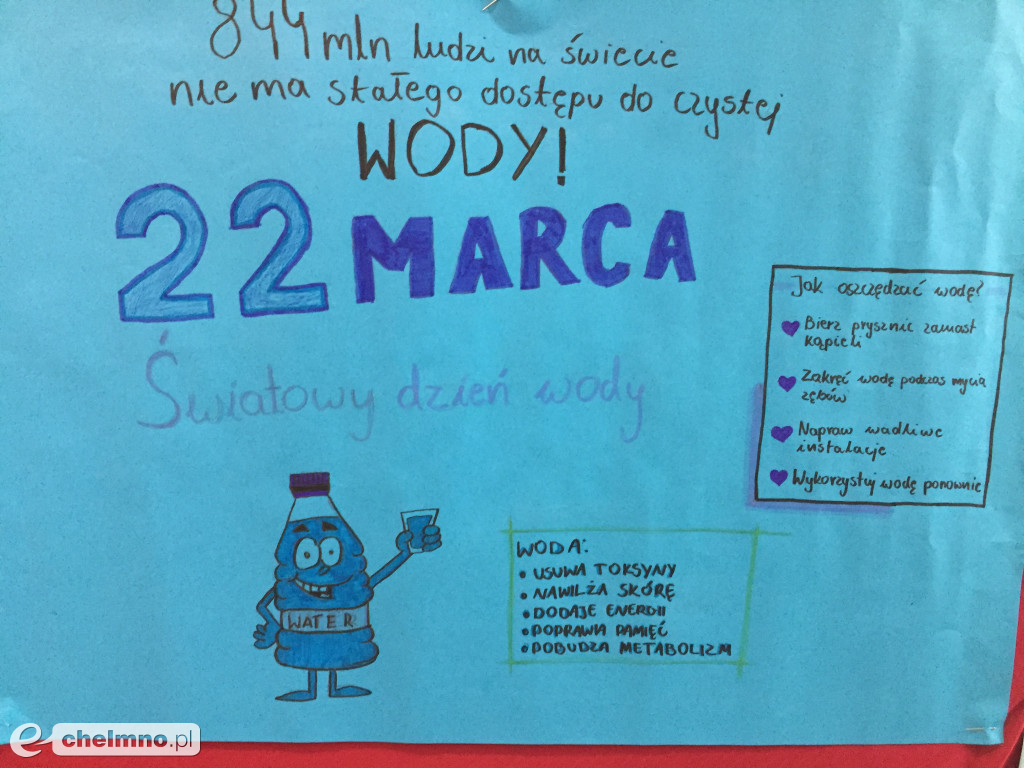 844 mln ludzi na świecie
nie ma stałego dostępu do czystej
WODY!
22 MARCA
Światowy dzień wody
Jak oszczędzać wodę?
Bierz prysznic zamiast
kąpieli
Zakręć wodę podczas mycia
zębów
Napraw wadliwe
instalacje
Wykorzystuj wodę ponownie
WATER
WODA:
• USUWA TOKSYNY
• NAWILŻA SKÓRĘ
• DODAJE ENERGII
• POPRAWIA PAMIĘĆ
• POBUDZA METABOLIZM
e chelmno.pl